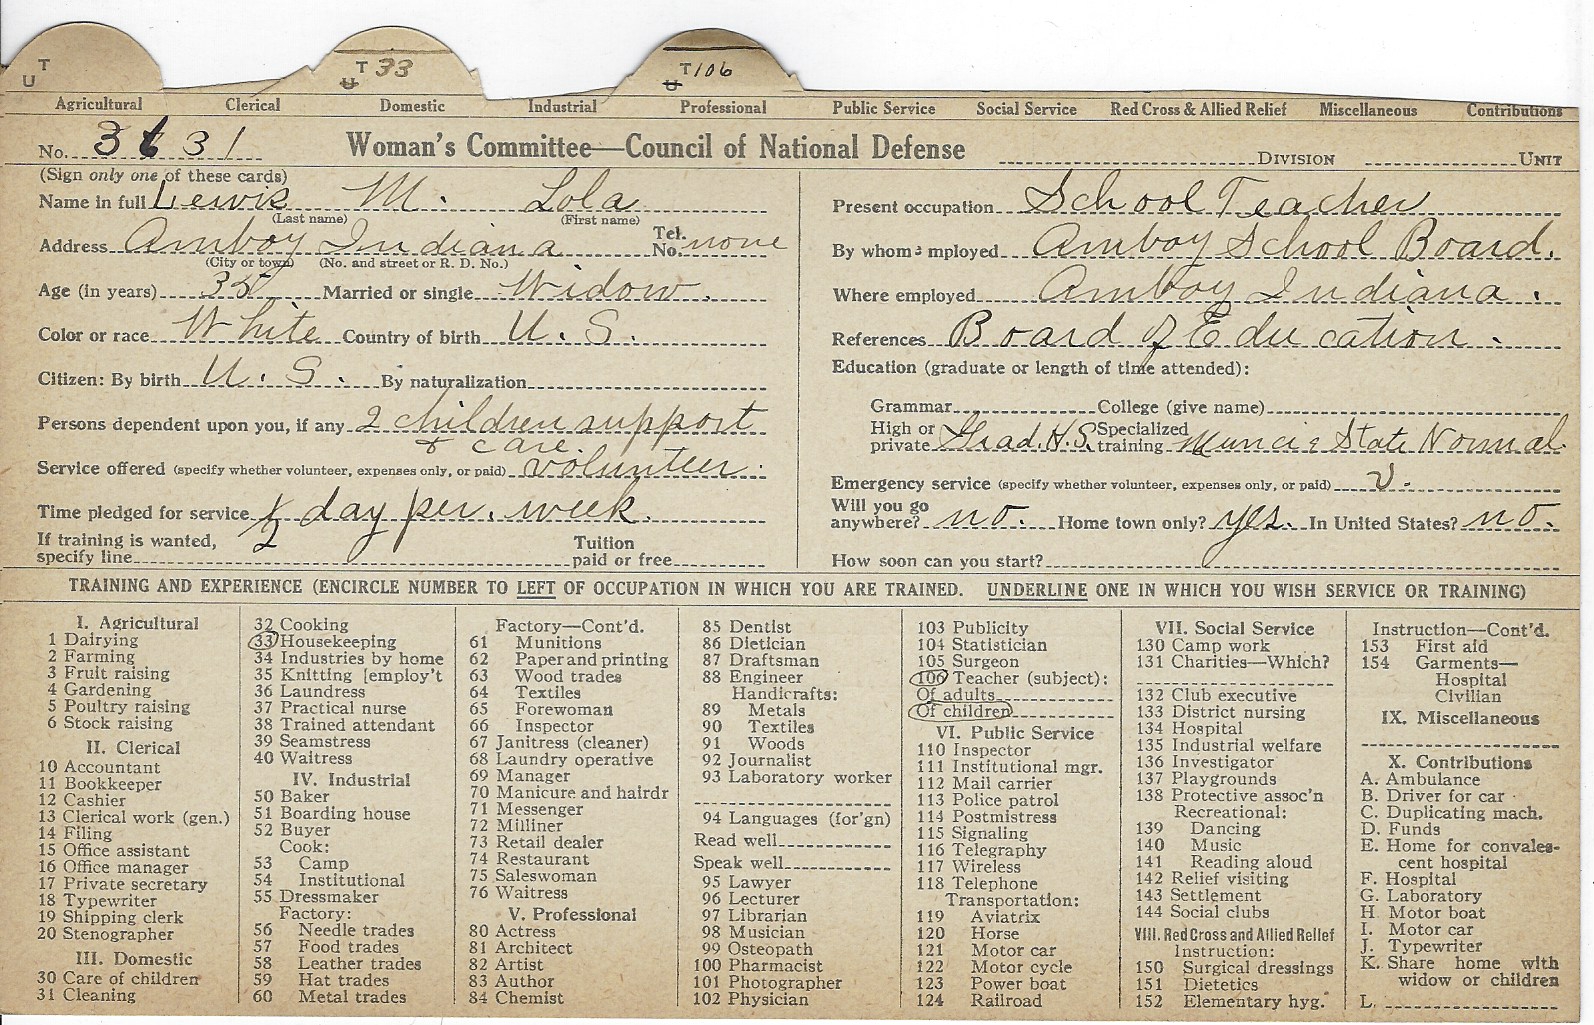 T
U
T 33
U
T 106
U
Agricultural Clerical Domestic Industrial Professional Public Service Social Service Red Cross & Allied Relief Miscellaneous Contributions
No. 3631 Woman's Committee—Council of National Defense DIVISION UNIT
(Sign only one of these cards)
Name in full Lewis M. Lola
(Last name) (First name)
Address Amboy Indiana Tel. No. none
(City or town) (No. and street or R. D. No.)
Age (in years) 35 Married or single Widow.
Color or race White Country of birth U. S.
Citizen: By birth U. S. By naturalization
Persons dependent upon you, if any 2 children support
& care.
Service offered (specify whether volunteer, expenses only, or paid) volunteer.
Time pledged for service 1/2 day per. week.
If training is wanted, Tuition
specify line paid or free
Present occupation School Teacher
By whom employed Amboy School Board.
Where employed Amboy Indiana.
References Board of Education.
Education (graduate or length of time attended):
Grammar College (give name)
High or private Grad. H.S. Specialized training Muncie State Normal.
Emergency service (specify whether volunteer, expenses only, or paid) v.
Will you go anywhere? no. Home town only? yes. In United States? no.
How soon can you start?
TRAINING AND EXPERIENCE (ENCIRCLE NUMBER TO LEFT OF OCCUPATION IN WHICH YOU ARE TRAINED. UNDERLINE ONE IN WHICH YOU WISH SERVICE OR TRAINING)
I. Agricultural
1 Dairying
2 Farming
3 Fruit raising
4 Gardening
5 Poultry raising
6 Stock raising
II. Clerical
10 Accountant
11 Bookkeeper
12 Cashier
13 Clerical work (gen.)
14 Filing
15 Office assistant
16 Office manager
17 Private secretary
18 Typewriter
19 Shipping clerk
20 Stenographer
III. Domestic
30 Care of children
31 Cleaning
32 Cooking
33 Housekeeping
34 Industries by home
35 Knitting [employ't
36 Laundress
37 Practical nurse
38 Trained attendant
39 Seamstress
40 Waitress
IV. Industrial
50 Baker
51 Boarding house
52 Buyer
Cook:
53 Camp
54 Institutional
55 Dressmaker
Factory:
56 Needle trades
57 Food trades
58 Leather trades
59 Hat trades
60 Metal trades
Factory—Cont'd.
61 Munitions
62 Paper and printing
63 Wood trades
64 Textiles
65 Forewoman
66 Inspector
67 Janitress (cleaner)
68 Laundry operative
69 Manager
70 Manicure and hairdr
71 Messenger
72 Milliner
73 Retail dealer
74 Restaurant
75 Saleswoman
76 Waitress
V. Professional
80 Actress
81 Architect
82 Artist
83 Author
84 Chemist
85 Dentist
86 Dietician
87 Draftsman
88 Engineer
Handicrafts:
89 Metals
90 Textiles
91 Woods
92 Journalist
93 Laboratory worker
94 Languages (for'gn)
Read well
Speak well
95 Lawyer
96 Lecturer
97 Librarian
98 Musician
99 Osteopath
100 Pharmacist
101 Photographer
102 Physician
103 Publicity
104 Statistician
105 Surgeon
106 Teacher (subject):
Of adults
Of children
VI. Public Service
110 Inspector
111 Institutional mgr.
112 Mail carrier
113 Police patrol
114 Postmistress
115 Signaling
116 Telegraphy
117 Wireless
118 Telephone
Transportation:
119 Aviatrix
120 Horse
121 Motor car
122 Motor cycle
123 Power boat
124 Railroad
VII. Social Service
130 Camp work
131 Charities—Which?
132 Club executive
133 District nursing
134 Hospital
135 Industrial welfare
136 Investigator
137 Playgrounds
138 Protective assoc'n
Recreational:
139 Dancing
140 Music
141 Reading aloud
142 Relief visiting
143 Settlement
144 Social clubs
VIII. Red Cross and Allied Relief
Instruction:
150 Surgical dressings
151 Dietetics
152 Elementary hyg.
Instruction—Cont'd.
153 First aid
154 Garments—
Hospital
Civilian
IX. Miscellaneous
X. Contributions
A. Ambulance
B. Driver for car
C. Duplicating mach.
D. Funds
E. Home for convales-
cent hospital
F. Hospital
G. Laboratory
H. Motor boat
I. Motor car
J. Typewriter
K. Share home with
widow or children
L.